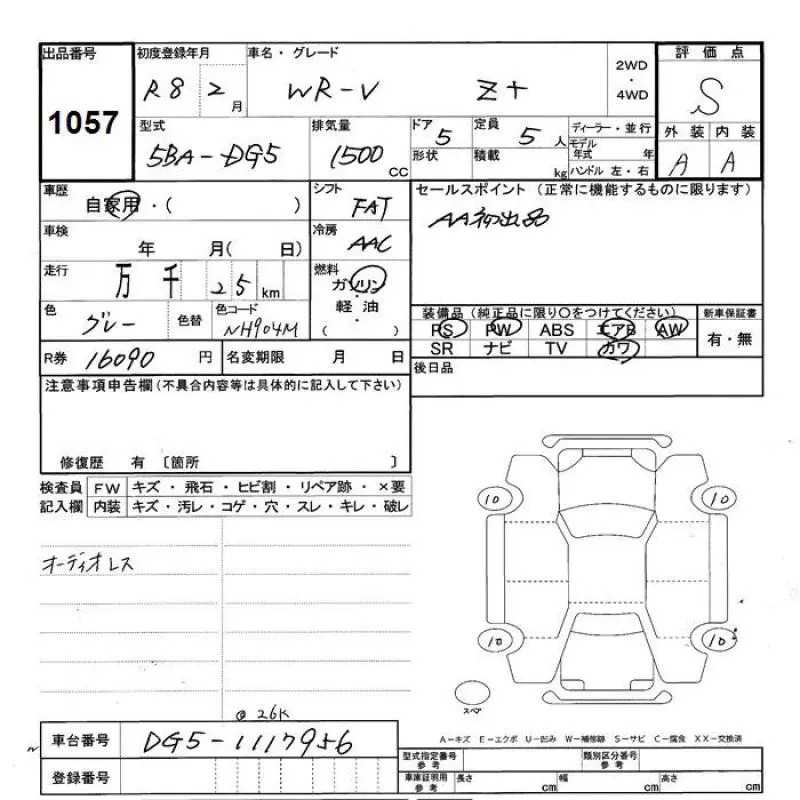 出品番号 初度登録年月 車名・グレード 評価点
1057 R8 2月 WR-V Z+ 2WD・4WD S
型式 排気量 ドア 定員 ディーラー・並行 外装 内装
5BA-DG5 1500cc 5 5人 モデル年式 年 A A
形状 積載 kg ハンドル 左・右
車歴 シフト セールスポイント (正常に機能するものに限ります)
自家用・( ) FAT AA初出品
車検 冷房
年 月( 日) AAC
走行 燃料
万 千 25km ガソリン・軽油・( )
色 色替 色コード 装備品(純正品に限り〇をつけてください) 新車保証書
グレー NH904M PS PW ABS エアB AW 有・無
SR ナビ TV カワ
R券 16090円 名変期限 月 日 後日品
注意事項申告欄(不具合内容等は具体的に記入して下さい)
修復歴 有 〔箇所 〕
検査員 FW キズ・飛石・ヒビ割・リペア跡・×要
記入欄 内装 キズ・汚レ・コゲ・穴・スレ・キレ・破レ
10 10
オーディオレス
10 10
スペア
@26K
A-キズ E-エクボ U-凹み W-補修跡 S-サビ C-腐食 XX-交換済
車台番号 DG5-1117956
型式指定番号 参考 類別区分番号 参考
登録番号 車庫証明用 参考 長さ cm 幅 cm 高さ cm